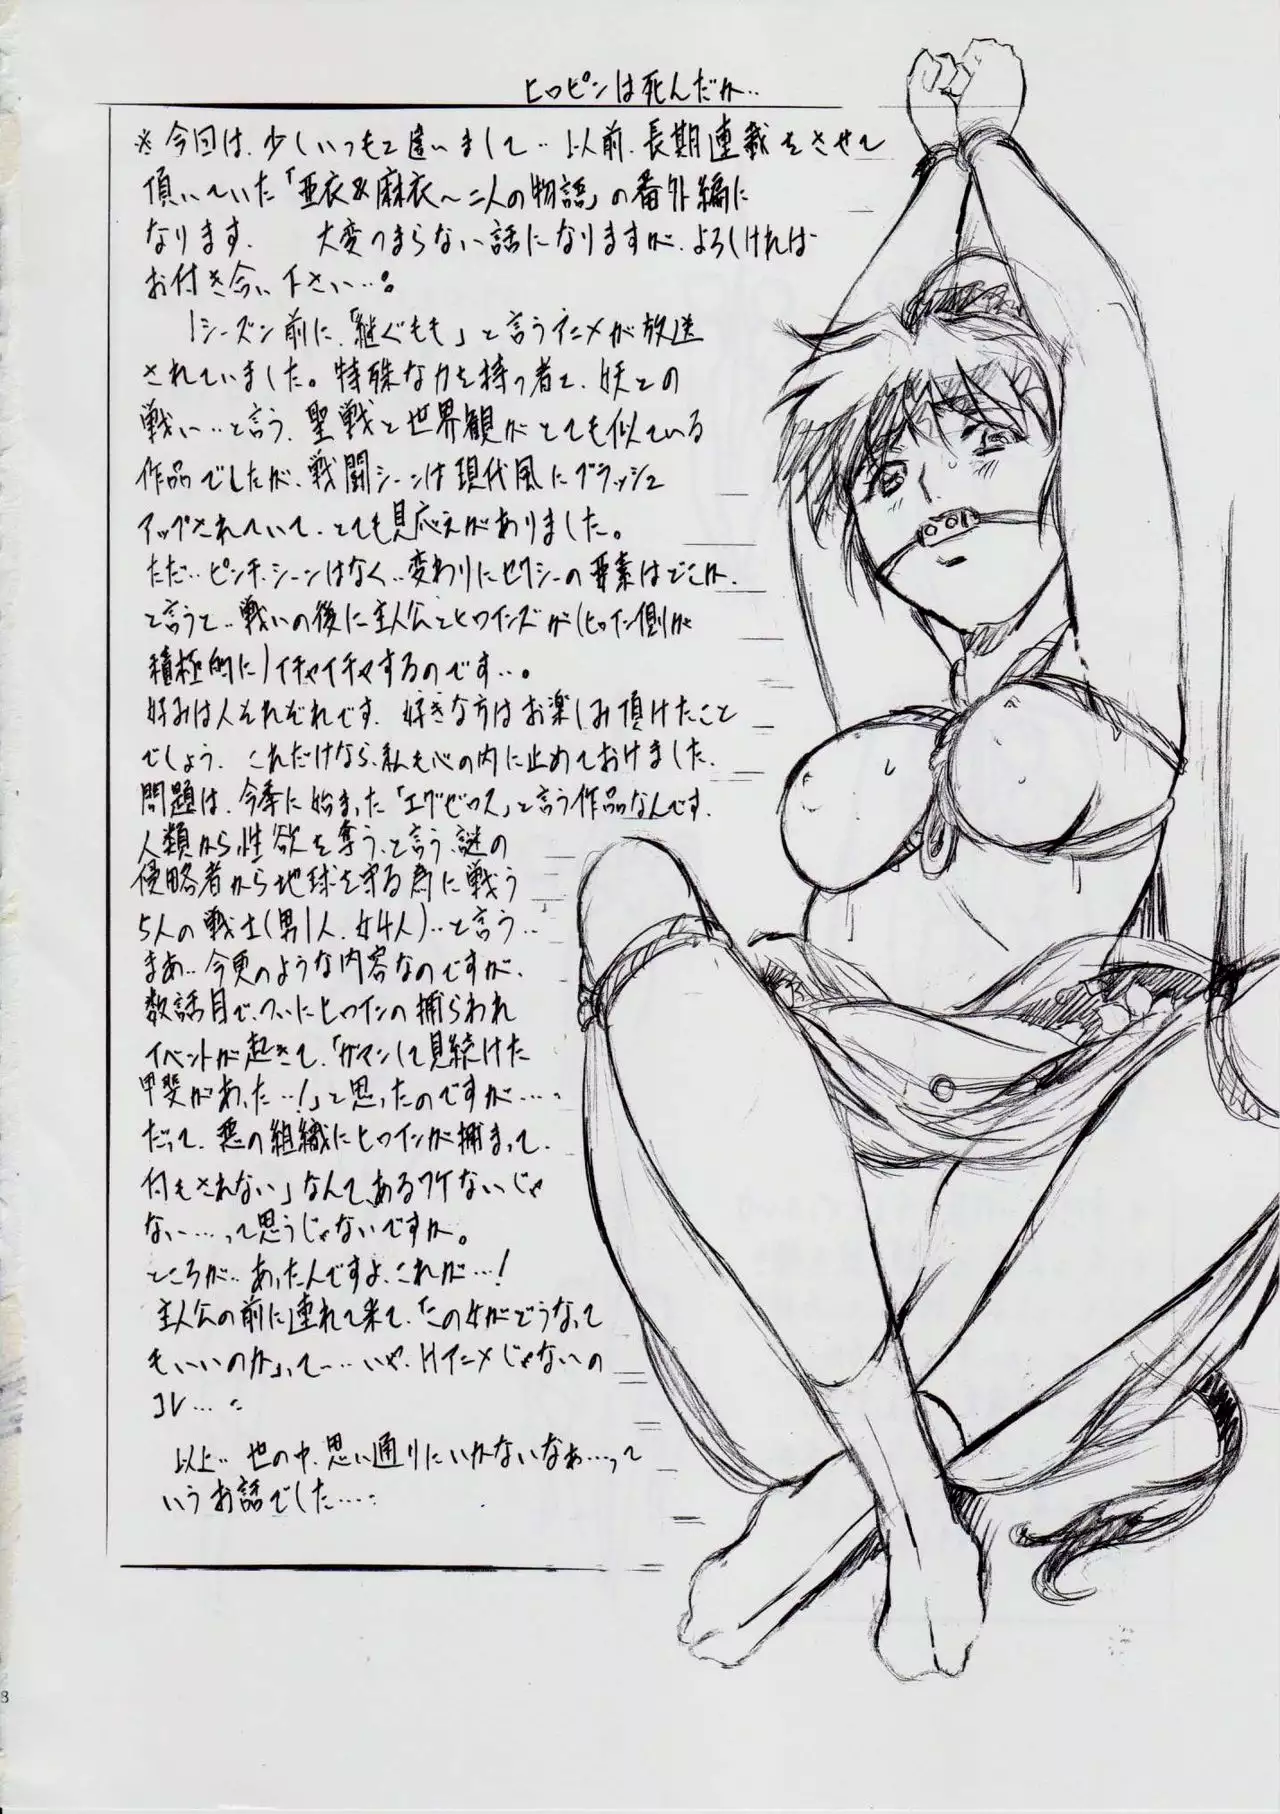 ヒロピンは死んだか‥
※今回は、少しいつもと違いまして‥以前、長期連載をさせて
頂いていた「亜衣&麻衣～二人の物語」の番外編に
なります。 大変つまらない話になりますが、よろしければ
お付き合い下さい‥。
1シーズン前に、「継ぐもも」と言うアニメが放送
されていました。特殊な力を持つ者と、妖との
戦い‥と言う、聖戦と世界観がとても似ている
作品でしたが、戦闘シーンは現代風にブラッシュ
アップされていて、とても見応えがありました。
ただ‥ピンチ・シーンはなく‥変わりにセクシーの要素はどこか、
と言うと‥戦いの後に主人公とヒロインズが(ヒロイン側が
積極的に)イチャイチャするのです‥。
好みは人それぞれです。好きな方はお楽しみ頂けたこと
でしょう。これだけなら、私も心の内に止めておけました。
問題は、今季に始まった「エグゼロス」と言う作品なんです。
人類から性欲を奪う、と言う、謎の
侵略者から地球を守る為に戦う
5人の戦士(男1人、女4人)‥と言う‥
まあ‥今更のような内容なのですが、
数話目で、ついにヒロインの捕らわれ
イベントが起きて、「ガマンして見続けた
甲斐があった‥!」と思ったのですが‥‥
だって、悪の組織にヒロインが捕まって、
何もされない」なんて、あるワケないじゃ
ない‥‥って思うじゃないですか。
ところが‥あったんですよ、これが‥!
主人公の前に連れて来て、「この女がどうなって
もいいのか」って‥‥いや、Hアニメじゃないの
コレ‥‥
以上‥世の中、思い通りにいかないなぁ‥‥って
いうお話でした‥‥
8